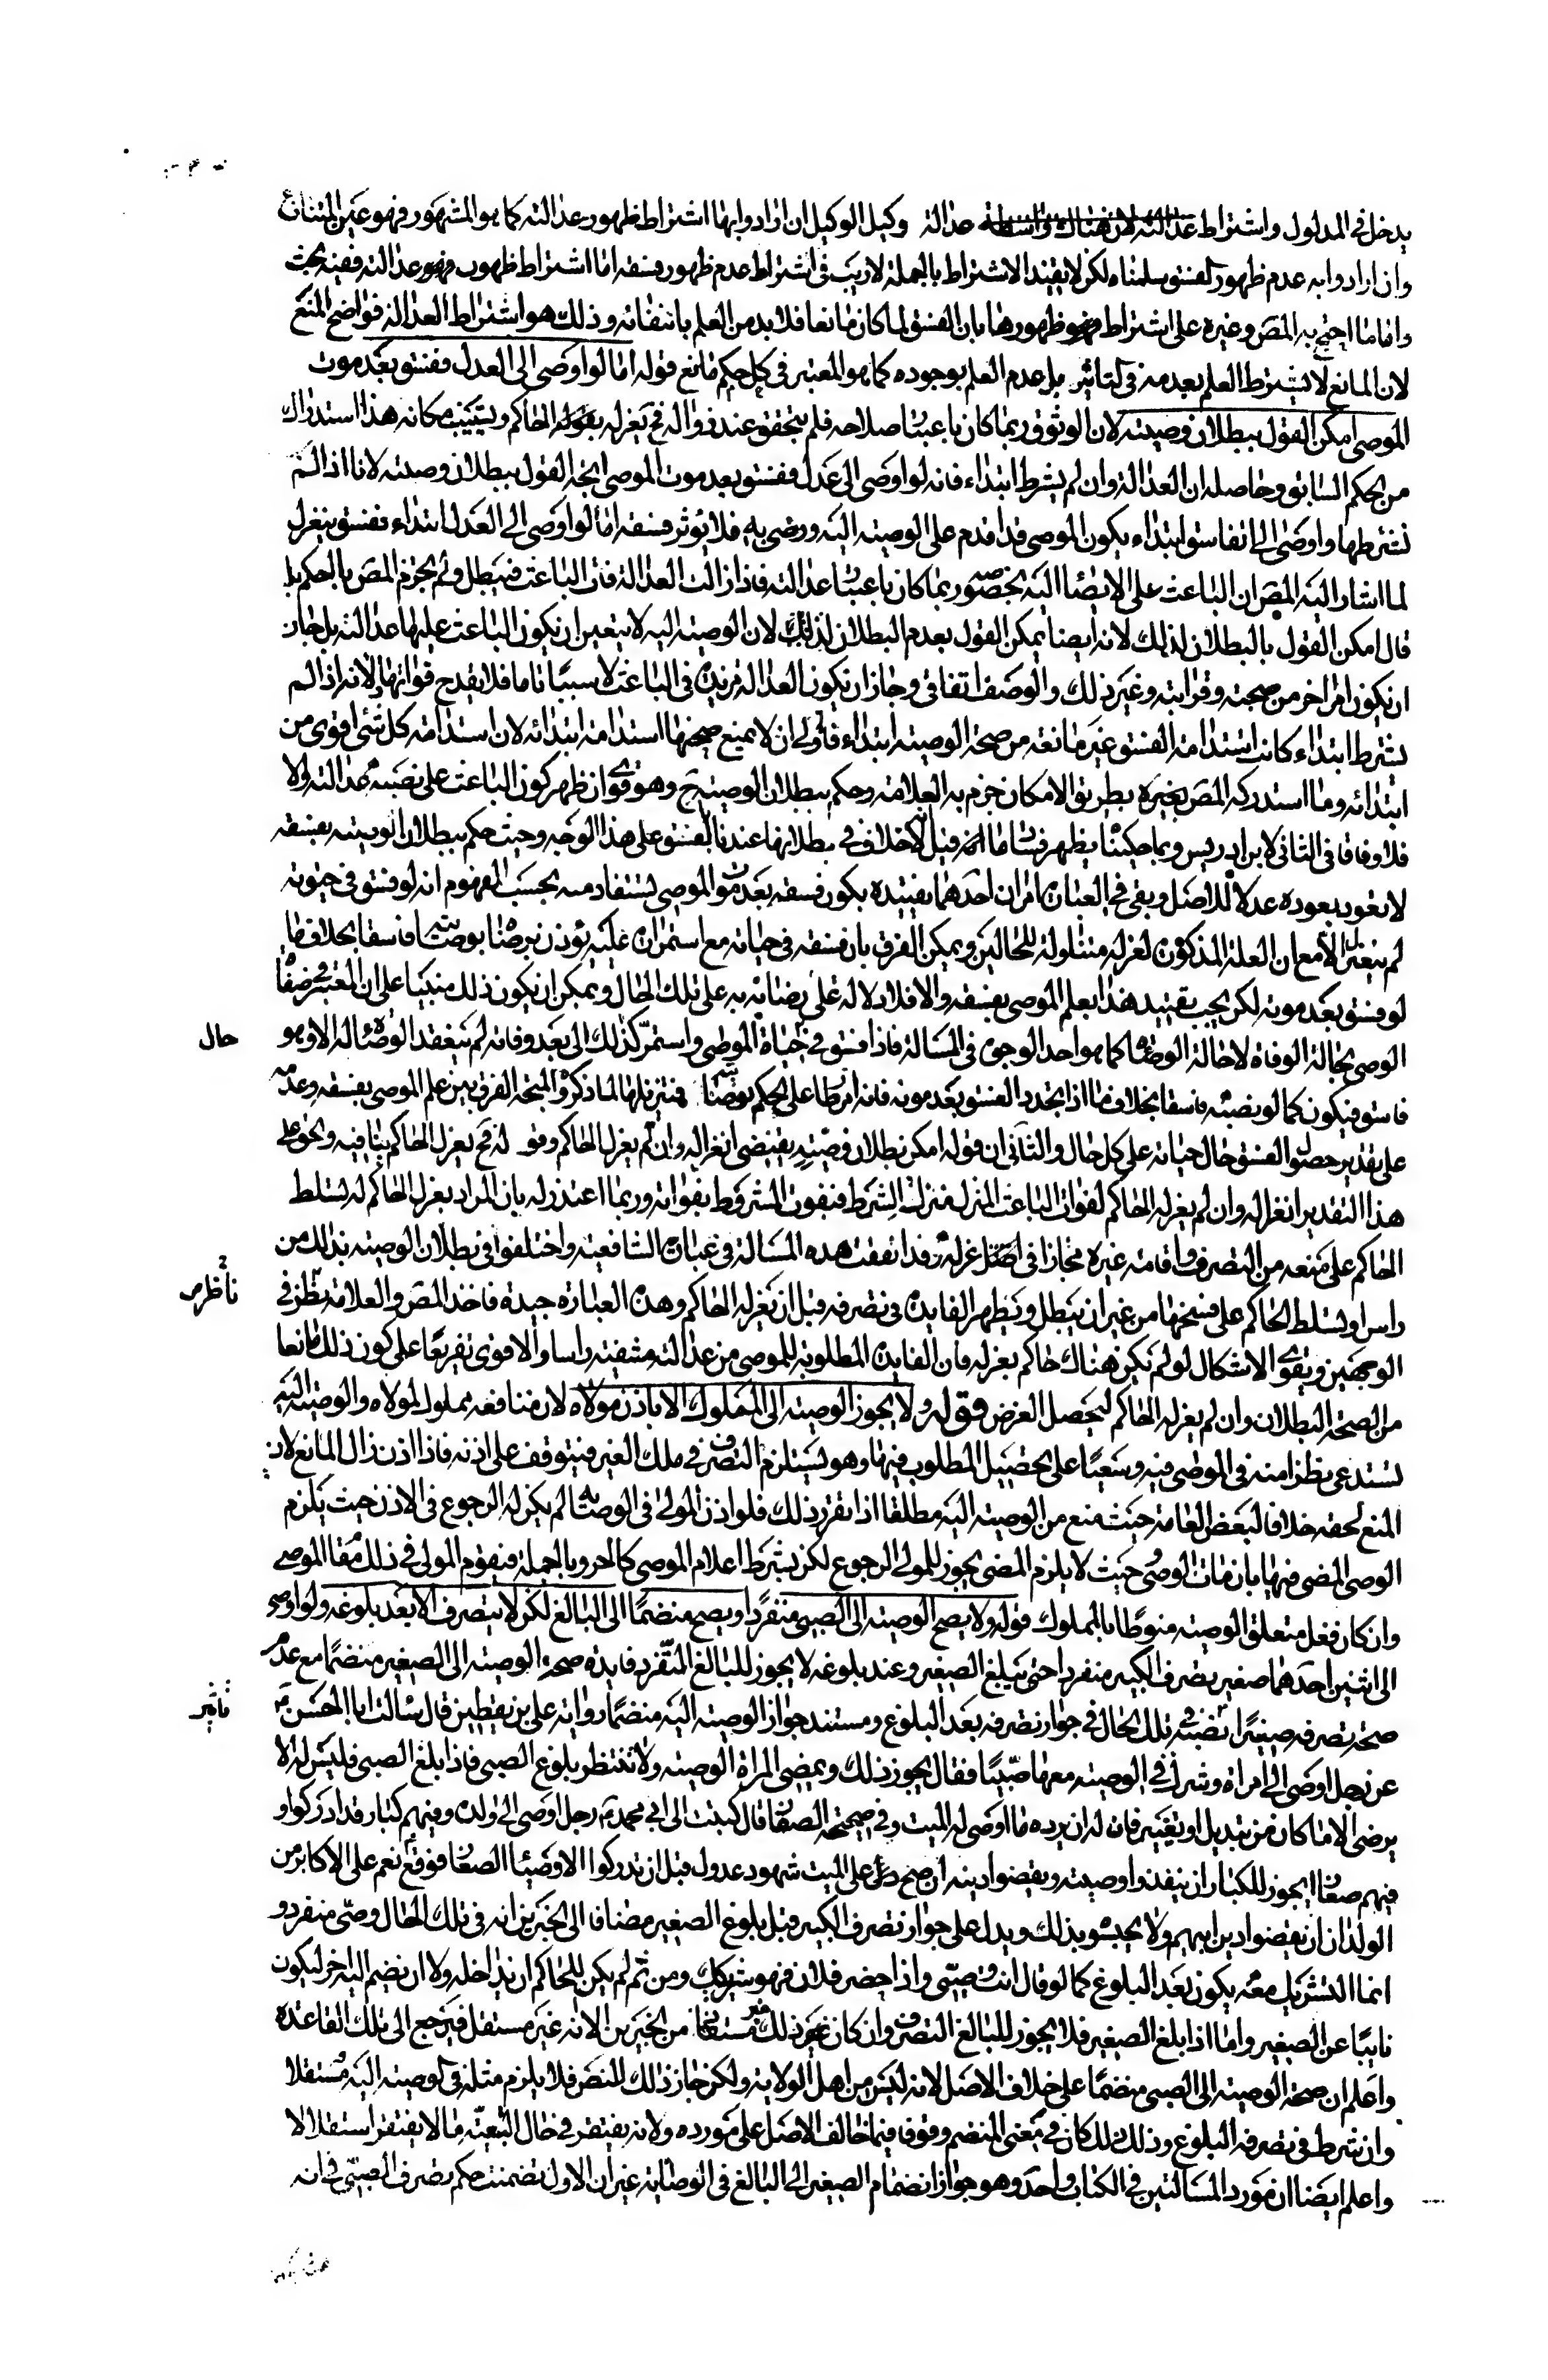 يدخل في المدلول واشتراط عدالة وكيل الوكيل ان ارادوا بها اشتراط ظهور عدالته كما هو المشهور فهو عين المتنازع
وان ارادوا به عدم ظهور الفسق سلمناه لكن لا يفيد الاشتراط بالجملة لا ريب في اشتراط عدم ظهور فسقه اما اشتراط ظهور عدالته ففيه بحث
واما ما احتج به المص وغيره على اشتراط ظهورها بان الفسق لما كان مانعا فلا بد من العلم بانتفائه وذلك هو اشتراط العدالة فواضح المنع
لان المانع لا يشترط العلم بعدمه في التاثير بل عدم العلم بوجوده كما هو المعتبر في كل حكم مانع قوله اما لو اوصى الى العدل ففسق بعد موت
الموصى امكن القول ببطلان وصيته لان الوثوق ربما كان باعتبار صلاحه فلم يتحقق عند زواله فح يعزله الحاكم ويستنيب مكانه هذا استدراك
من الحكم السابق وحاصله ان العدالة وان لم يشترط ابتداء فانه لو اوصى الى عدل ففسق بعد موت الموصى اتجه القول ببطلان وصيته لانا اذا لم
نشترطها واوصى الى الفاسق ابتداء يكون الموصى قد اقدم على الوصيته اليه ورضى به فلا يؤثر فسقه اما لو اوصى الى العدل ابتداء ففسق ينعزل
لما اشار اليه المص ان الباعث على الايصاء اليه بخصوصه ربما كان باعتبار عدالته فاذا زالت العدالة فات الباعث فيبطل ولم يجزم المص بالحكم بل
قال امكن القول بالبطلان لذلك لانه ايضا يمكن القول بعدم البطلان لذلك لان الوصيته اليه لا يتعين ان يكون الباعث عليها عدالته بل جاز
ان يكون امرا اخر من صحبته وقرابته وغير ذلك والوصف اتفاقي وجاز ان يكون العدالة مزيدة في الباعث لا سببا تاما فلا يقدح فواتها ولانه اذا لم
يشترط ابتداء كانت استدامة الفسق غير مانعة من صحة الوصيته ابتداء فاولى ان لا يمنع صحتها استدامة ابتدائه لان استدامة كل شئ اقوى من
ابتدائه وما استدركه المص بطريق الامكان جزم به العلامة وحكم ببطلان الوصيته ح وهو قوى ان ظهر كون الباعث على نصبه عدالته والا
فلا وفاقا في الثاني لابن ادريس وبما حكيناه يظهر فساد ما قيل لا خلاف في بطلانها عندنا بالفسق على هذا الوجه وحيث حكم ببطلان الوصيته بفسقه
لا تعود بعوده عدلا للاصل وبقي في العبارة امران احدهما تقييده بكون فسقه بعد موت الموصى يستفاد منه بحسب المفهوم انه لو فسق في حيوته
لم ينعزل مع ان العلة المذكورة لعزله متناولة للحالين ويمكن الفرق بان فسقه في حياته مع استمراره عليه يؤذن برضاه بوصايته فاسقا بخلاف ما
لو فسق بعد موته لكن يجب تقييد هذا بعلم الموصى بفسقه والا فلا دلالة على رضائه به على تلك الحال ويمكن ان يكون ذلك مبنيا على ان المعتبر في صفات
الوصى بحالة الوفاة لا حالة الوصاية كما هو احد الوجوه في المسالة فاذا فسق في حياة الموصى واستمر كذلك الى بعد وفاته لم تنعقد الوصاية له الا وهو
فاسق فيكون كما لو نصبه فاسقا بخلاف ما اذا تجدد الفسق بعد موته فانه امر طار على الحكم بوصايته فتنزيلها لما ذكر والمتجه الفرق بين علم الموصى بفسقه وعدمه
على تقدير حصول الفسق حال حياته على كل حال والثاني ان قوله امكن بطلان وصيته يقتضى انعزاله وان لم يعزله الحاكم وقوله فح يعزله الحاكم ينافيه والحق على
هذا التقدير انعزاله وان لم يعزله الحاكم لفوات الباعث المنزل منزلة الشرط فيفوت المشروط بفواته وربما اعتذر له بان المراد بعزل الحاكم له تسلط
الحاكم على منعه من التصرف واقامة غيره مجازا في اصل عزله وقد اتفقت هذه المسالة في عبارة الشافعية واختلفوا في بطلان الوصيته بذلك من
راس او تسلط الحاكم على فسخها من غير ان يبطل وتظهر الفايدة في تصرفه قبل ان يعزله الحاكم وهذه العبارة جيدة فاخذ المص والعلامة في
الوجهين ويقوى الاشكال لو لم يكن هناك حاكم يعزله فان الفايدة المطلوبة للموصى من عدالته منتفية راسا والاقوى تفريعا على كون ذلك مانعا
من الصحة البطلان وان لم يعزله الحاكم ليحصل الغرض قوله ولا يجوز الوصيته الى المملوك الا باذن مولاه لان منافعه مملوكة لمولاه والوصيته اليه
تستدعى نظرا منه في الموصى فيه وسعيا على تحصيل المطلوب فيها وهو يستلزم التصرف في ملك الغير فيتوقف على اذنه فاذا اذن زال المانع لان
المنع لحقه خلافا لبعض العامة حيث منع من الوصيته اليه مطلقا اذا تقرر ذلك فلو اذن المولى في الوصاية لم يكن له الرجوع في الاذن حيث يلزم
الوصى المضى فيها بان مات الموصى وحيث لا يلزم المضى يجوز للمولى الرجوع لكن بشرط اعلام الموصى كالحر وبالجملة فيقوم المولى في ذلك مقام الموصى
وان كان فعل متعلق الوصيته منوطا بالمملوك قوله ولا يصح الوصيته الى الصبى منفردا ويصح منضما الى البالغ لكن لا يتصرف الا بعد بلوغه ولو اوصى
الى اثنين احدهما صغير تصرف الكبير منفردا حتى يبلغ الصغير وعند بلوغه لا يجوز للبالغ التفرد فايدة صحة الوصيته الى الصغير منضما مع عدم
صحة تصرفه صغيرا تلك الحال في جواز تصرفه بعد البلوغ ومستند جواز الوصيته اليه منضما رواية على بن يقطين قال سالت ابا الحسن ع
عن رجل اوصى الى امراة وشرك في الوصيته معها صبيا فقال يجوز ذلك ويمضى المراة الوصيته ولا تنتظر بلوغ الصبى فاذا بلغ الصبى فليس له الا
يرضى الا ما كان من تبديل او تغيير فان له ان يرده الى ما اوصى له الميت وفي صحيحة الصفار قال كتبت الى ابي محمد ع رجل اوصى الى ولده وفيهم كبار قد ادركوا و
فيهم صغار ايجوز للكبار ان ينفذوا وصيته ويقضوا دينه ان صح على الميت شهود عدول قبل ان تدركوا الاوصياء الصغار فوقع ع نعم على الاكابر من
الولدان ان يقضوا دين ابيهم ولا يحبسوه بذلك ويدل على جواز تصرف الكبير قبل بلوغ الصغير مضافا الى الخبرين انه في تلك الحال وصى منفرد و
انما التشريك معه يكون بعد البلوغ كما لو قال انت وصيى واذا حضر فلان فهو شريكك ومن ثم لم يكن للحاكم ان يداخله ولا ان يضم اليه اخر ليكون
نايبا عن الصغير واما اذا بلغ الصغير فلا يجوز للبالغ التصرف وان كان ذلك غير مستفاد من الخبرين الا انه غير مستقل فيرجع الى تلك القاعدة
واعلم ان صحة الوصيته الى الصبى منضما على خلاف الاصل لانه ليس من اهل الولاية ولكن جاز ذلك للنص فلا يلزم مثله في الوصيته اليه مستقلا
وان شرط في تصرفه البلوغ وذلك كان في معنى المنضم وقوفا فيما خالف الاصل على مورده ولانه يفتقر في حال التبعية ما لا يفتقر استقلالا
واعلم ايضا ان مورد المسالتين في الكتاب واحد وهو جواز انضمام الصغير الى البالغ في الوصاية غير ان الاول تضمنت حكم تصرف الصبى في انه
حال